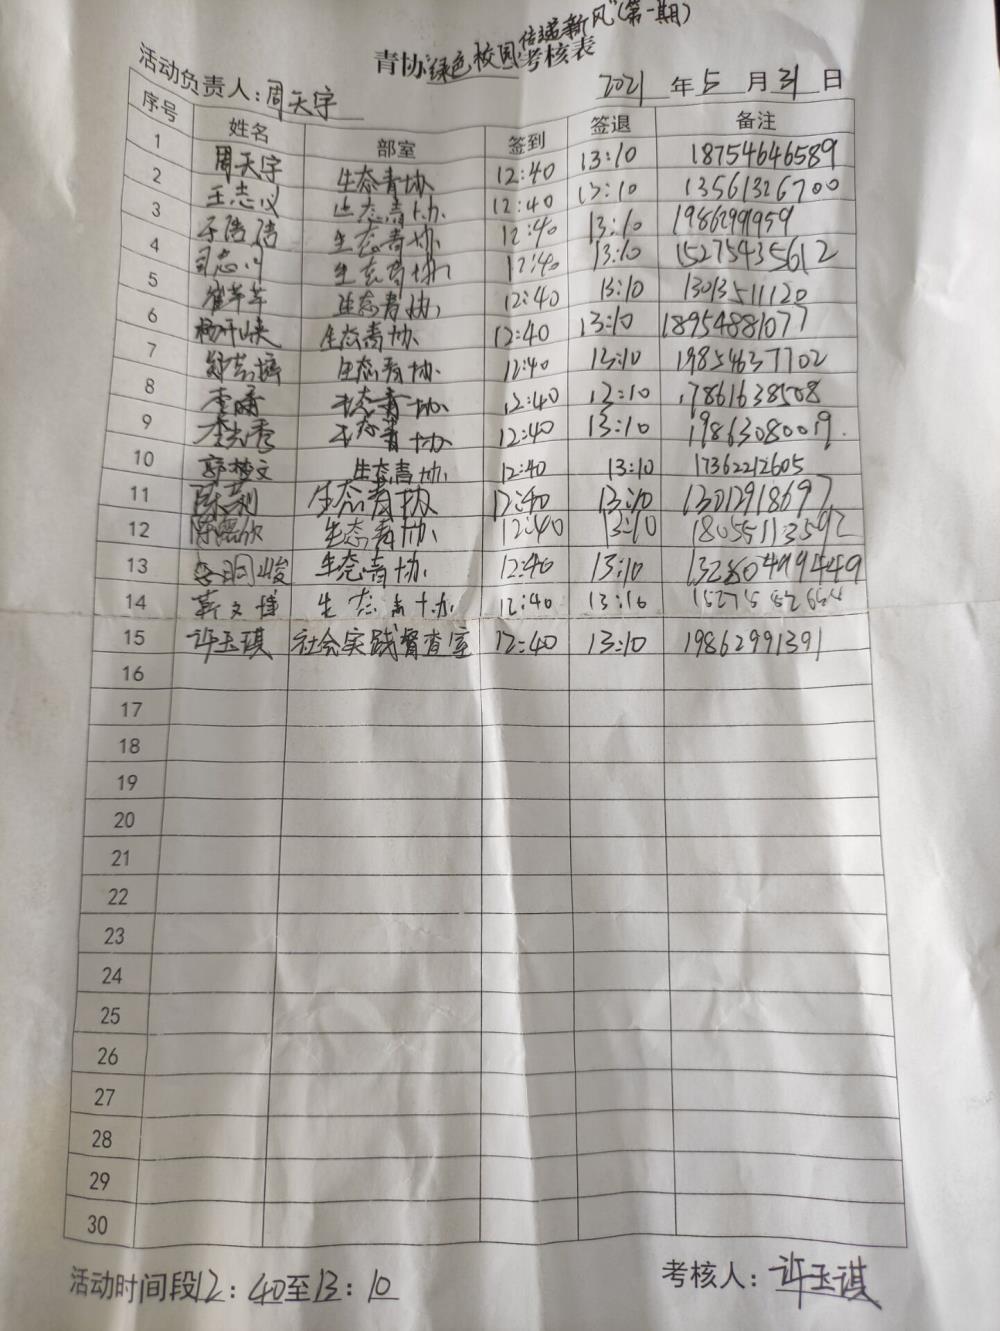 青协"绿色校园,传递新风"(第一期)考核表
活动负责人:周天宇 2021 年 5 月 31 日
序号 姓名 部室 签到 签退 备注
1 周天宇 生态青协 12:40 13:10 18754646589
2 王志义 生态青协 12:40 13:10 13561326700
3 生态青协 12:40 13:10 19862991959
4 生态青协 12:40 13:10 15275435612
5 崔苹苹 生态青协 12:40 13:10 13013511120
6 生态青协 12:40 13:10 18954881077
7 生态青协 12:40 13:10 19854637702
8 生态青协 12:40 13:10 17861638508
9 李先秀 生态青协 12:40 13:10 19863080019
10 郭梦文 生态青协 12:40 13:10 17362212605
11 生态青协 12:40 13:10 13012918697
12 生态青协 12:40 13:10 18055113592
13 生态青协 12:40 13:10
14 靳文博 生态青协 12:40 13:10
15 许玉琪 社会实践督查室 12:40 13:10 19862991391
16
17
18
19
20
21
22
23
24
25
26
27
28
29
30
活动时间段12:40至13:10 考核人:许玉琪